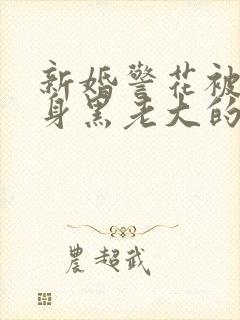 新婚警花被
身黑老大的
農超武